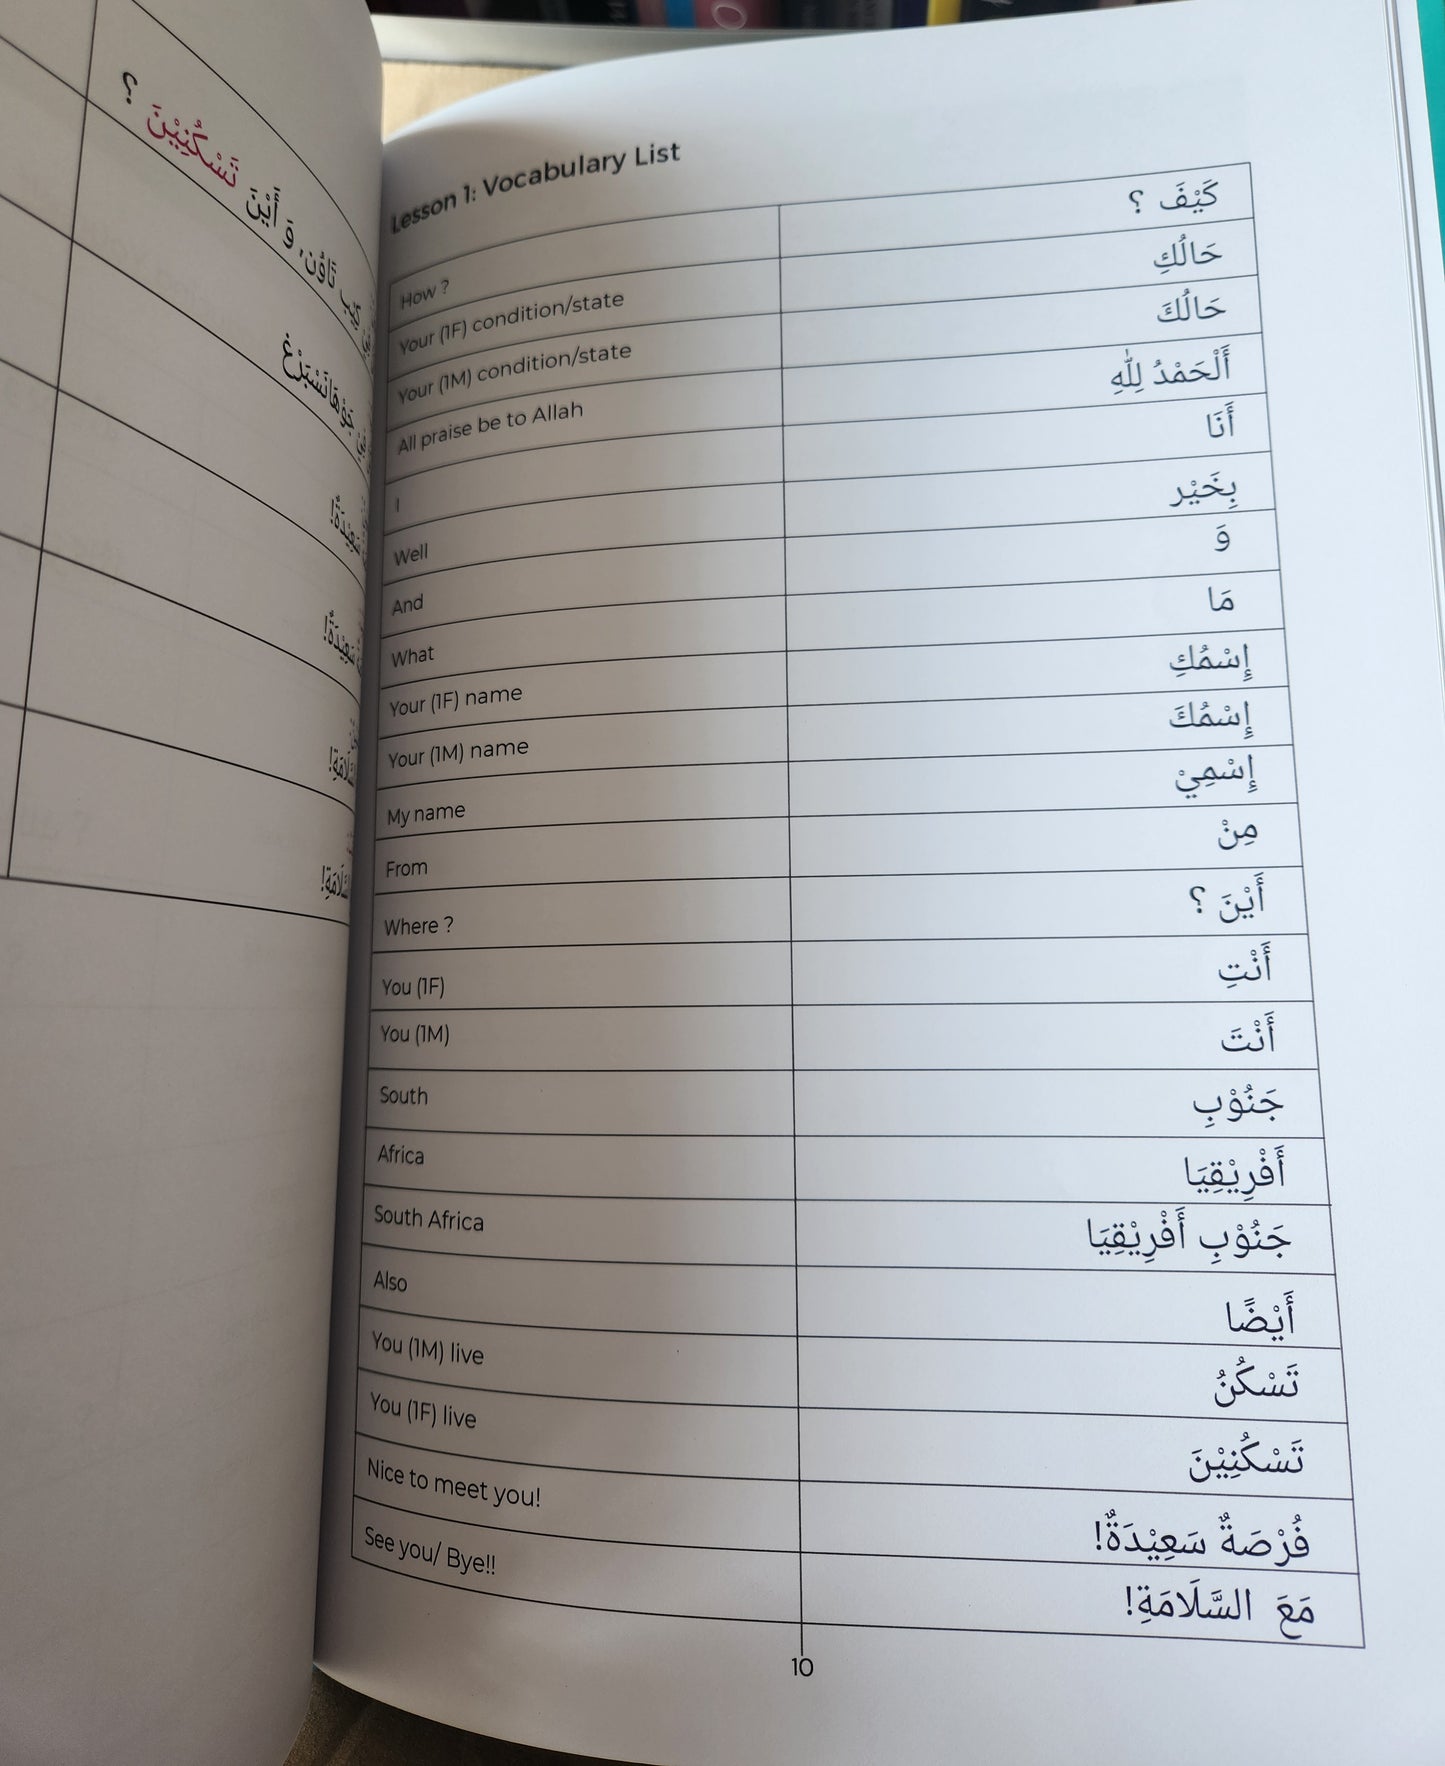 تَسْكُنِيْنَ ؟
وَ أَيْنَ
كَيْب تَاوُن,
جَوْهَانَسْبَرْغ
سَعِيْدَةٌ!
سَعِيْدَةٌ!
Lesson 1: Vocabulary List
How ? كَيْفَ ؟
Your (1F) condition/state حَالُكِ
Your (1M) condition/state حَالُكَ
All praise be to Allah أَلْحَمْدُ لِلّٰهِ
I أَنَا
Well بِخَيْر
And وَ
What مَا
Your (1F) name إِسْمُكِ
Your (1M) name إِسْمُكَ
My name إِسْمِيْ
From مِنْ
Where ? أَيْنَ ؟
You (1F) أَنْتِ
You (1M) أَنْتَ
South جَنُوْبِ
Africa أَفْرِيْقِيَا
South Africa جَنُوْبِ أَفْرِيْقِيَا
Also أَيْضًا
You (1M) live تَسْكُنُ
You (1F) live تَسْكُنِيْنَ
Nice to meet you! فُرْصَةٌ سَعِيْدَةٌ!
See you/ Bye!! مَعَ السَّلَامَةِ!
10